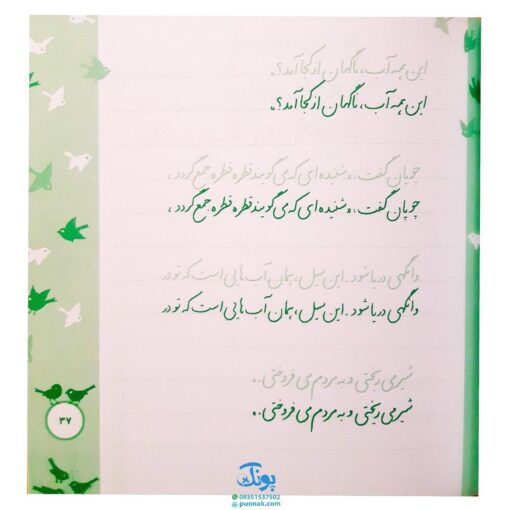 این همه آب، ناگهان از کجا آمد؟»
این همه آب، ناگهان از کجا آمد؟»
چوپان گفت: «شنیده ای که می گویند قطره قطره جمع گردد،
چوپان گفت: «شنیده ای که می گویند قطره قطره جمع گردد،
وانگهی دریا شود. این سیل، همان آب هایی است که تو در
وانگهی دریا شود. این سیل، همان آب هایی است که تو در
شیر می ریختی و به مردم می فروختی.»
شیر می ریختی و به مردم می فروختی.»
۳۷
پونک
09351537502
puonak.com